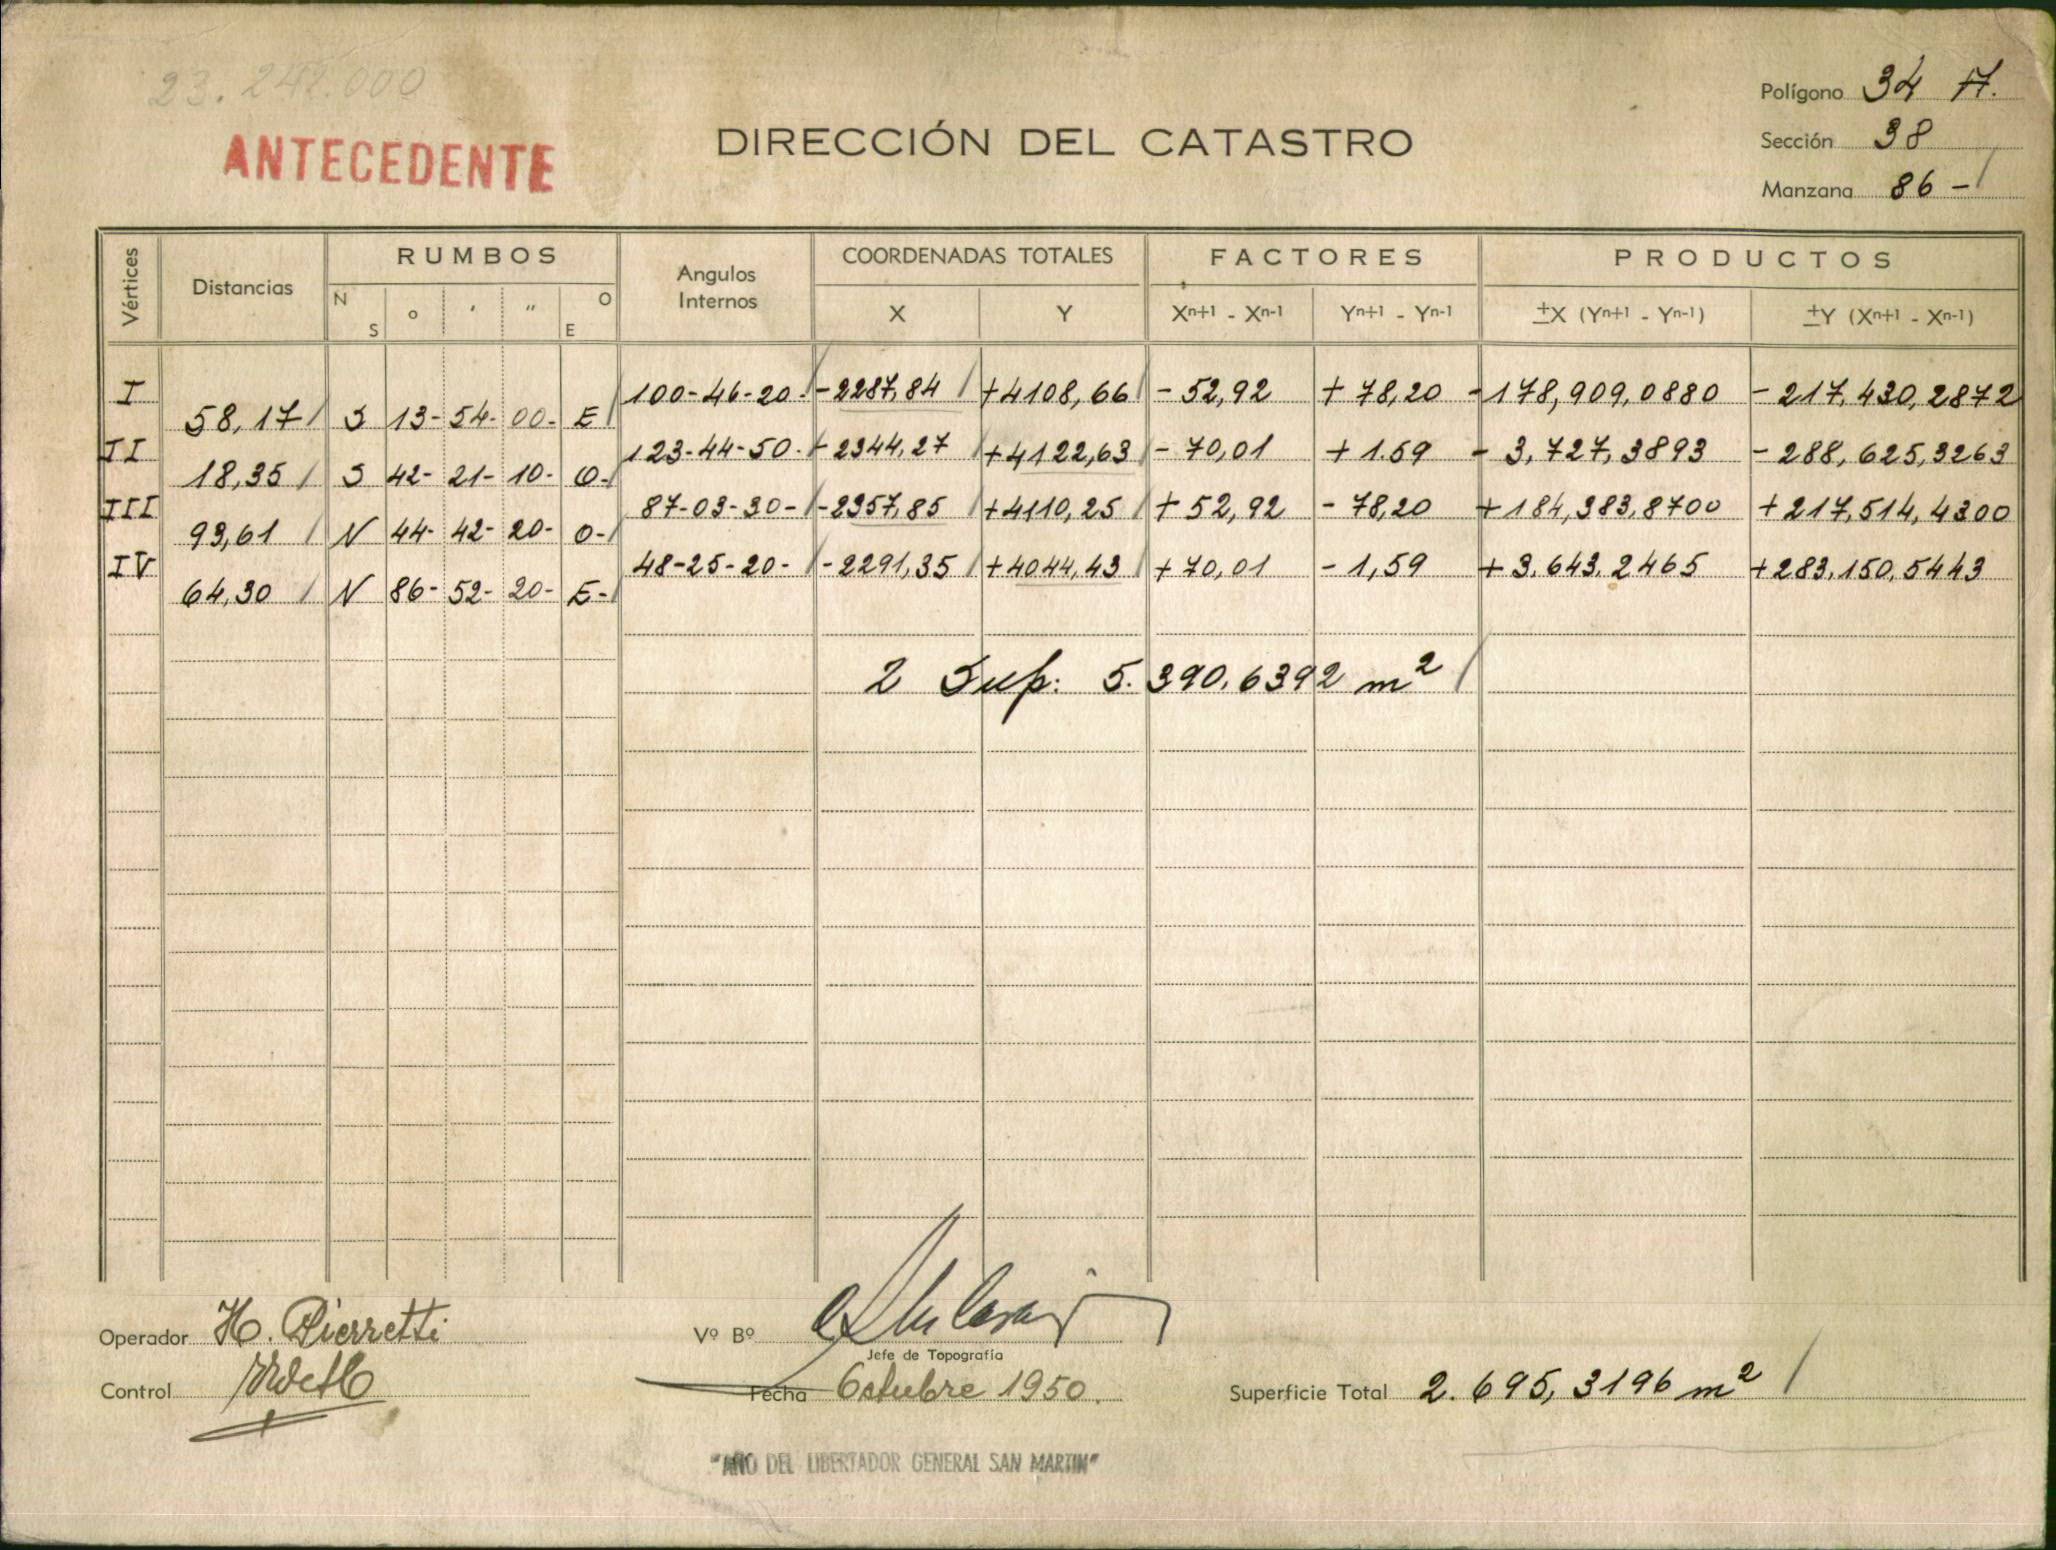 23.242.000
ANTECEDENTE
DIRECCIÓN DEL CATASTRO
Polígono 34 A.
Sección 38
Manzana 86 -
Vértices Distancias RUMBOS Angulos Internos COORDENADAS TOTALES FACTORES PRODUCTOS
N S ° ' " O E X Y Xn+1 - Xn-1 Yn+1 - Yn-1 ±X (Yn+1 - Yn-1) ±Y (Xn+1 - Xn-1)
I 100-46-20- -2287,84 +4108,66 - 52,92 + 78,20 -178,909,0880 - 217,430,2872
58,17 S 13- 54- 00- E
II 123-44-50- -2344,27 +4122,63 - 70,01 + 1.59 - 3,727,3893 - 288,625,3263
18,35 S 42- 21- 10- O-
III 87-03-30- -2357,85 +4110,25 + 52,92 - 78,20 +184,383,8700 +217,514,4300
93,61 N 44- 42- 20- O-
IV 48-25-20- -2291,35 +4044,43 +70,01 - 1,59 +3.643.2465 +283.150,5443
64,30 N 86- 52- 20- E-
2 Sup: 5.390.6392 m²
Operador H. Pierretti
Vº Bº
Jefe de Topografía
Control
Fecha Octubre 1950.
Superficie Total 2.695,3196 m²
"AÑO DEL LIBERTADOR GENERAL SAN MARTIN"